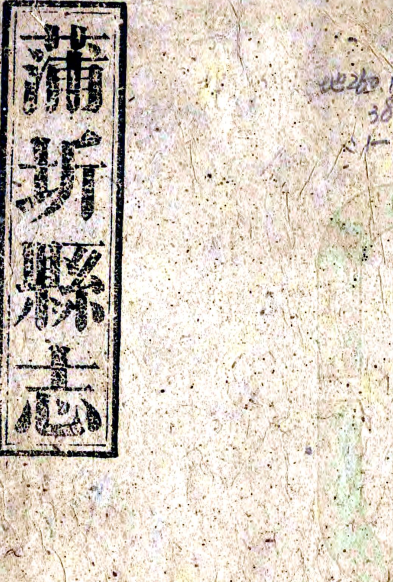 蒲圻縣志
地 
38